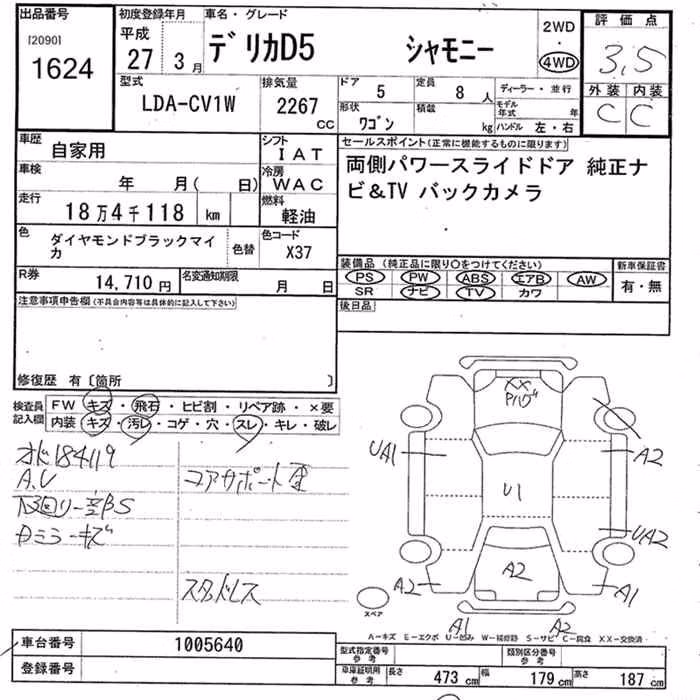 出品番号
[2090]
1624
初度登録年月
平成
27 3月
車名・グレード
デリカD5 シャモニー
2WD
4WD
評価点
3,5
外装 内装
C C
型式
LDA-CV1W
排気量
2267
cc
ドア
5
定員
8 人
形状
ワゴン
積載
kg
ディーラー・並行
モデル年式 年
ハンドル 左・右
車歴
自家用
車検
年 月( 日)
走行
18万4千118 km
シフト
IAT
冷房
WAC
燃料
軽油
セールスポイント(正常に機能するものに限ります)
両側パワースライドドア 純正ナ
ビ&TV バックカメラ
色
ダイヤモンドブラックマイ
カ
色替
色コード
X37
R券
14,710 円
名変通知期限
月 日
装備品(純正品に限り○をつけてください)
PS PW ABS エアB AW
SR ナビ TV カワ
新車保証書
有・無
後日品
注意事項申告欄(不具合内容等は具体的に記入して下さい)
修復歴 有〔箇所 〕
検査員
記入欄
FW キズ・飛石・ヒビ割・リペア跡・×要
内装 キズ・汚レ・コゲ・穴・スレ・キレ・破レ
オド184119
A.U
下回り一部S
Dミラーキズ
コアサポート歪
スタッドレス
XX
UA1
A2
U1
UA2
A2
A2
A1
A1
A2
スペア
A-キズ E-エクボ U-凹み W-補修跡 S-サビ C-腐食 XX-交換済
車台番号
1005640
登録番号
型式指定番号
参考
類別区分番号
参考
車庫証明用
参考
長さ 473 cm 幅 179 cm 高さ 187 cm